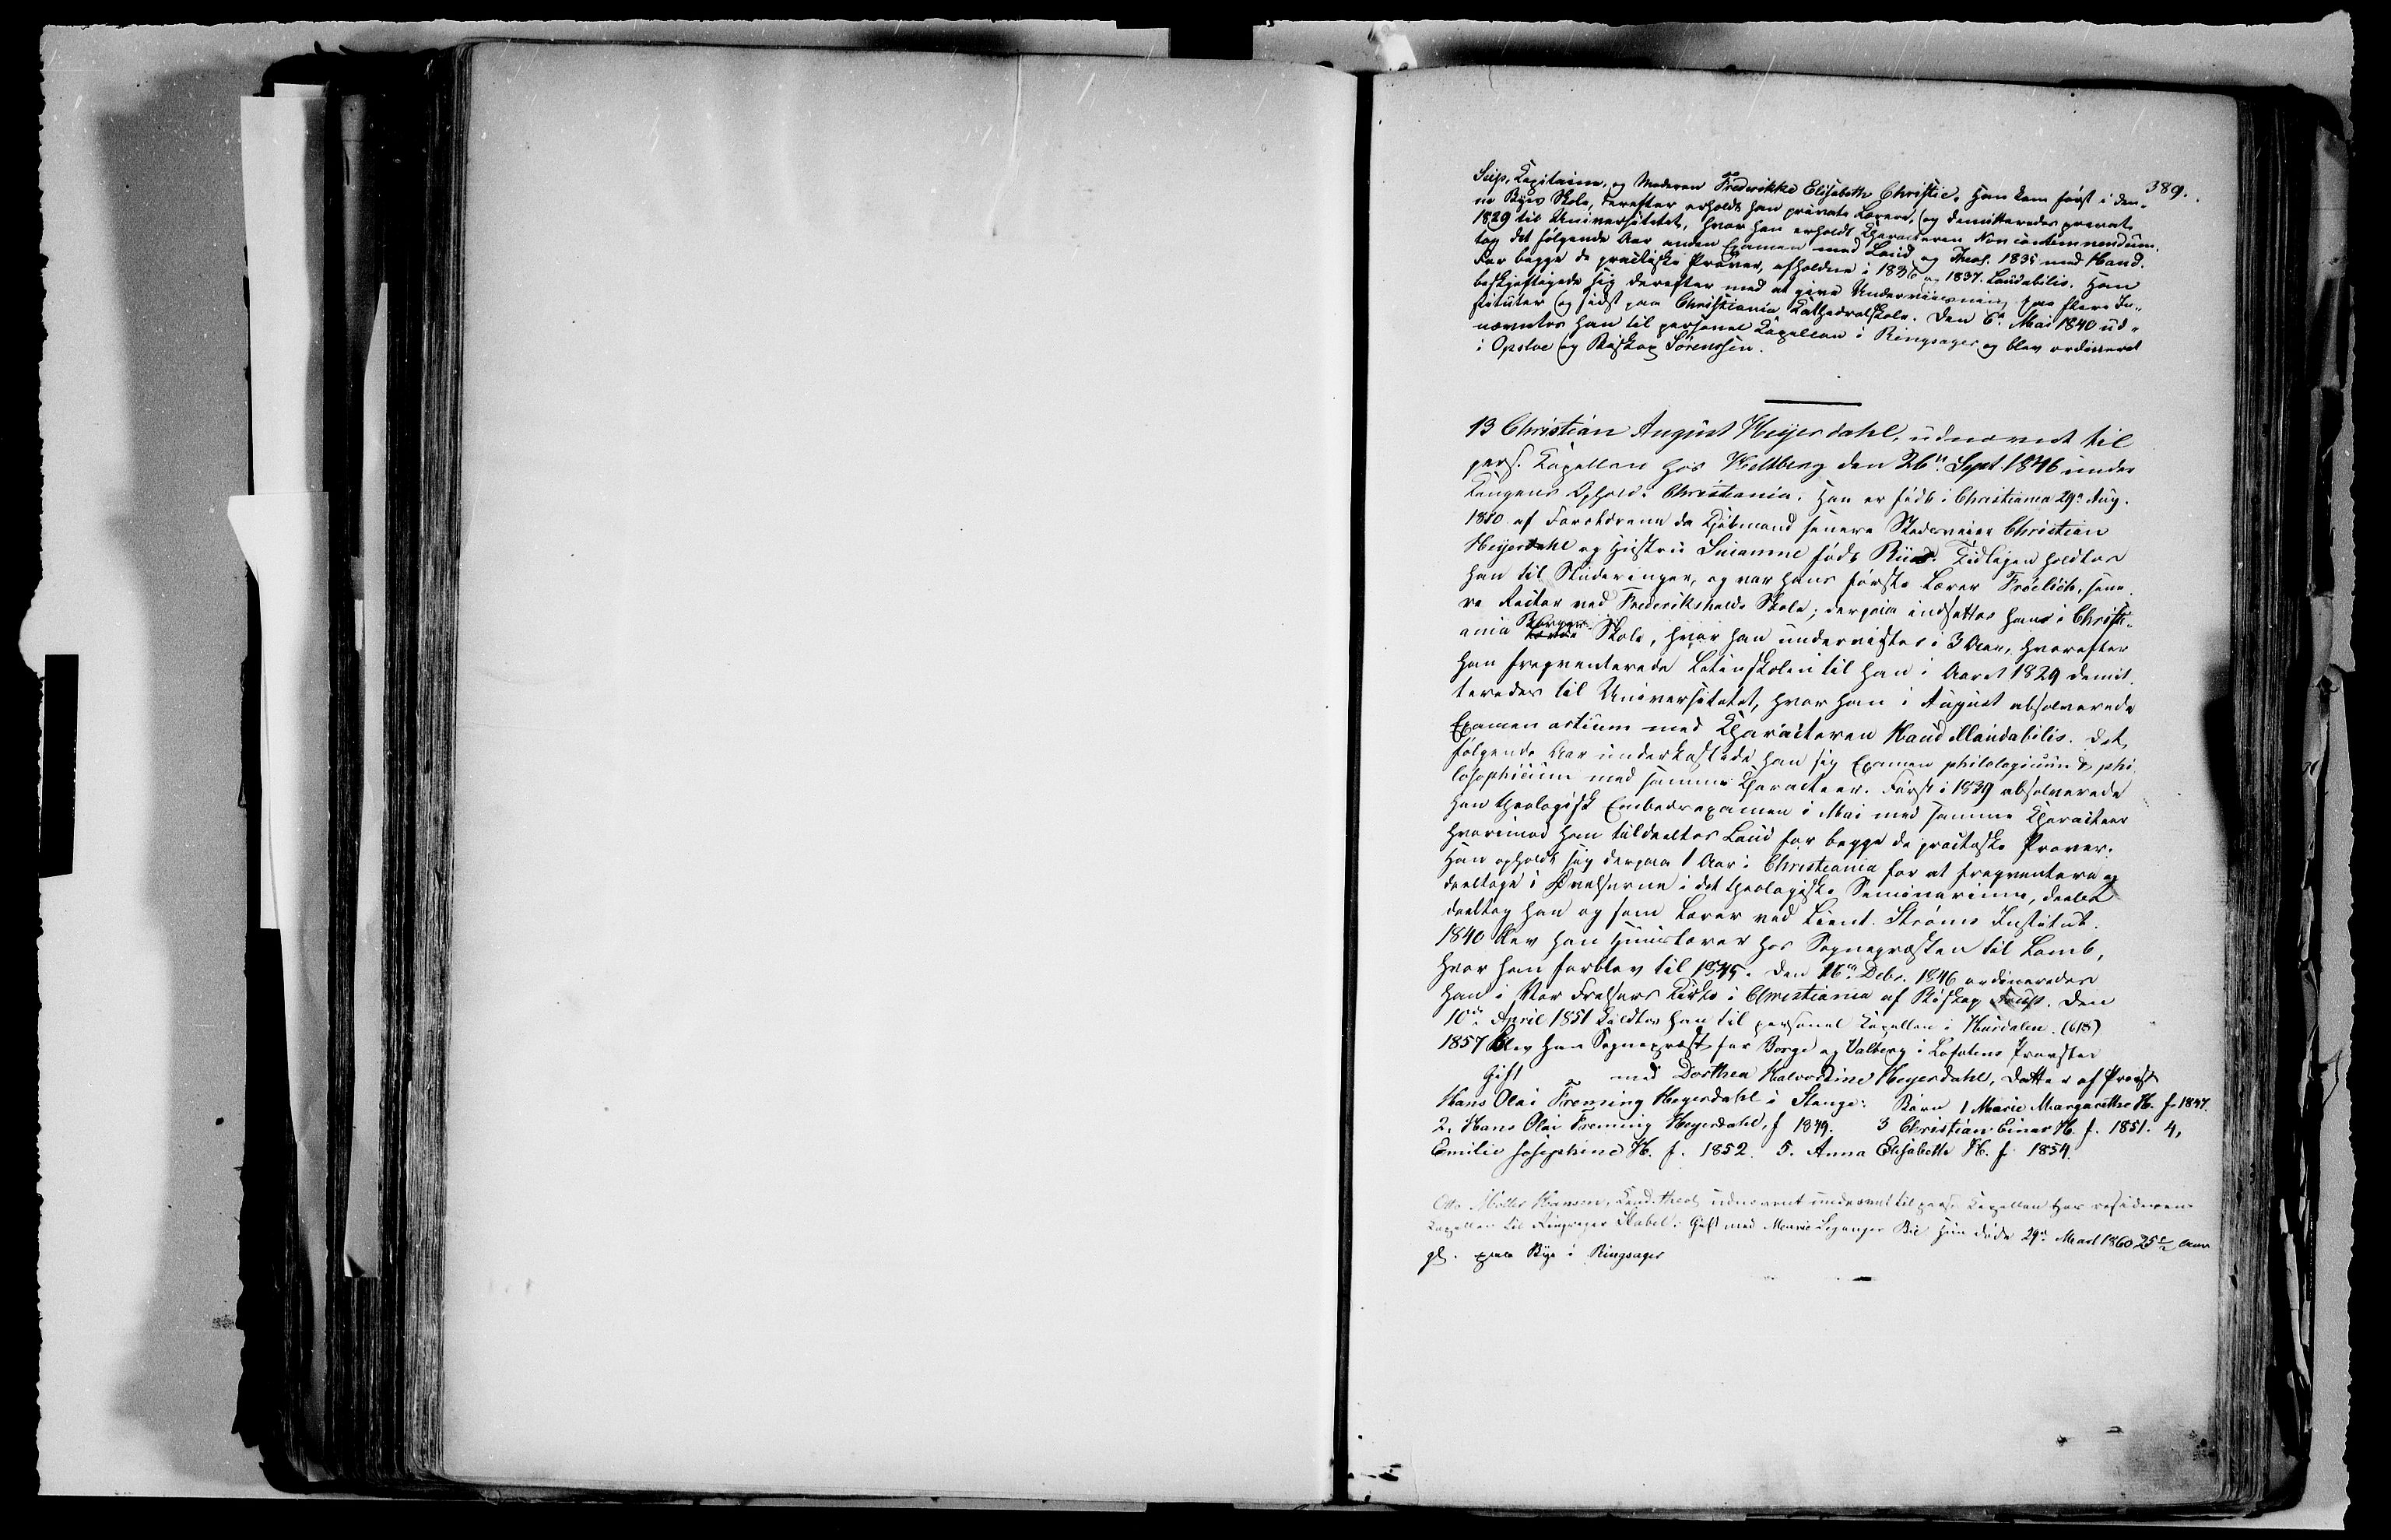 389.
Seip, Kapitaine, og Moderen Frederikke Elisabeth Christie. Han kom først i den-
ne Byes Skole, derefter erholdt han private Lærere, og demitteredes privat
1829 til Universitetet, hvor han erholdt Characteren Non contemnendum.
tog det følgende Aar anden Examen med Laud og Theol. 1835 med Haud.
For begge de practiske Prøver, afholdne i 1836 og 1837. Laudabilis. Han
beskjæftigede sig derefter med at give Underviisning paa flere In-
stituter og sidst paa Christiania Kathedralskole. Den 6te Mai 1840 ud-
nævntes han til personel Kapellan i Ringsager og blev ordineret
i Opsloe af Biskop Sørenssen.
13 Christian August Heyerdahl, udnævnt til
pers. Kapellan hos Heltberg den 26de Sept. 1846 under
Kongens Ophold i Christiania. Han er født i Christiania 29de Aug.
1810 af Forældrene da Kjøbmand senere Christian
Heyerdahl og Hustru Susanne født. Tidligen holdtes
han til Studeringer, og var hans første Lærer Frøelich, sene-
re Rector ved Frederikshalds Skole; derpaa indsattes han i Christi-
ania Borger Skole, hvor han undervistes i 3 Aar, hvorefter
han freqventerede Latinskolen til han i Aaret 1829 demit-
teredes til Universitetet, hvor han i August absolverede
Examen artium med Characteren Haud illaudabilis. Det
følgende Aar underkastede han sig Examen philologicum & phi-
losophicum med samme Characteer. Først i 1839 absolverede
han theologisk Embedsexamen i Mai med samme Characteer
hvorimod han tildeeltes Laud for begge de practiske Prøver.
Han opholdt sig derpaa 1 Aar i Christiania for at freqventere og
deeltage i Øvelserne i det theologiske Seminarium, deels
deeltog han og som Lærer ved Lieut. Strøms Institut.
1840 blev han Huuslærer hos Sognepræsten til Lomb,
hvor han forblev til 1845. Den 16de Debr. 1846 ordineredes
han i Vor Frelsers Kirke i Christiania af Biskop. Den
10de April 1851 kaldtes han til personel Kapellan i Hurdalen. (618)
1857 blev han Sognepræst for Borge og Valberg i Lofotens Provstie
Gift med Dorthea Halvordine Heyerdahl, Datter af Provst
Hans Olai Freming Heyerdahl i Stange: Børn 1 Marie Margarethe H. f. 1847.
2. Hans Olai Freming Heyerdahl, f 1849. 3 Christian Einar H. f. 1851. 4,
Emilie Josephine H. f. 1852. 5. Anna Elisabeth H. f 1854.
Otto Møller Hansen, Cand. theol. udnævnt til pers. Kapellan hos residerende
Kapellan til Ringsager Stabel. Gift med Marie Bie hun døde 29de Mart 1860 25 1/2 Aar
gl. paa Bye i Ringsager